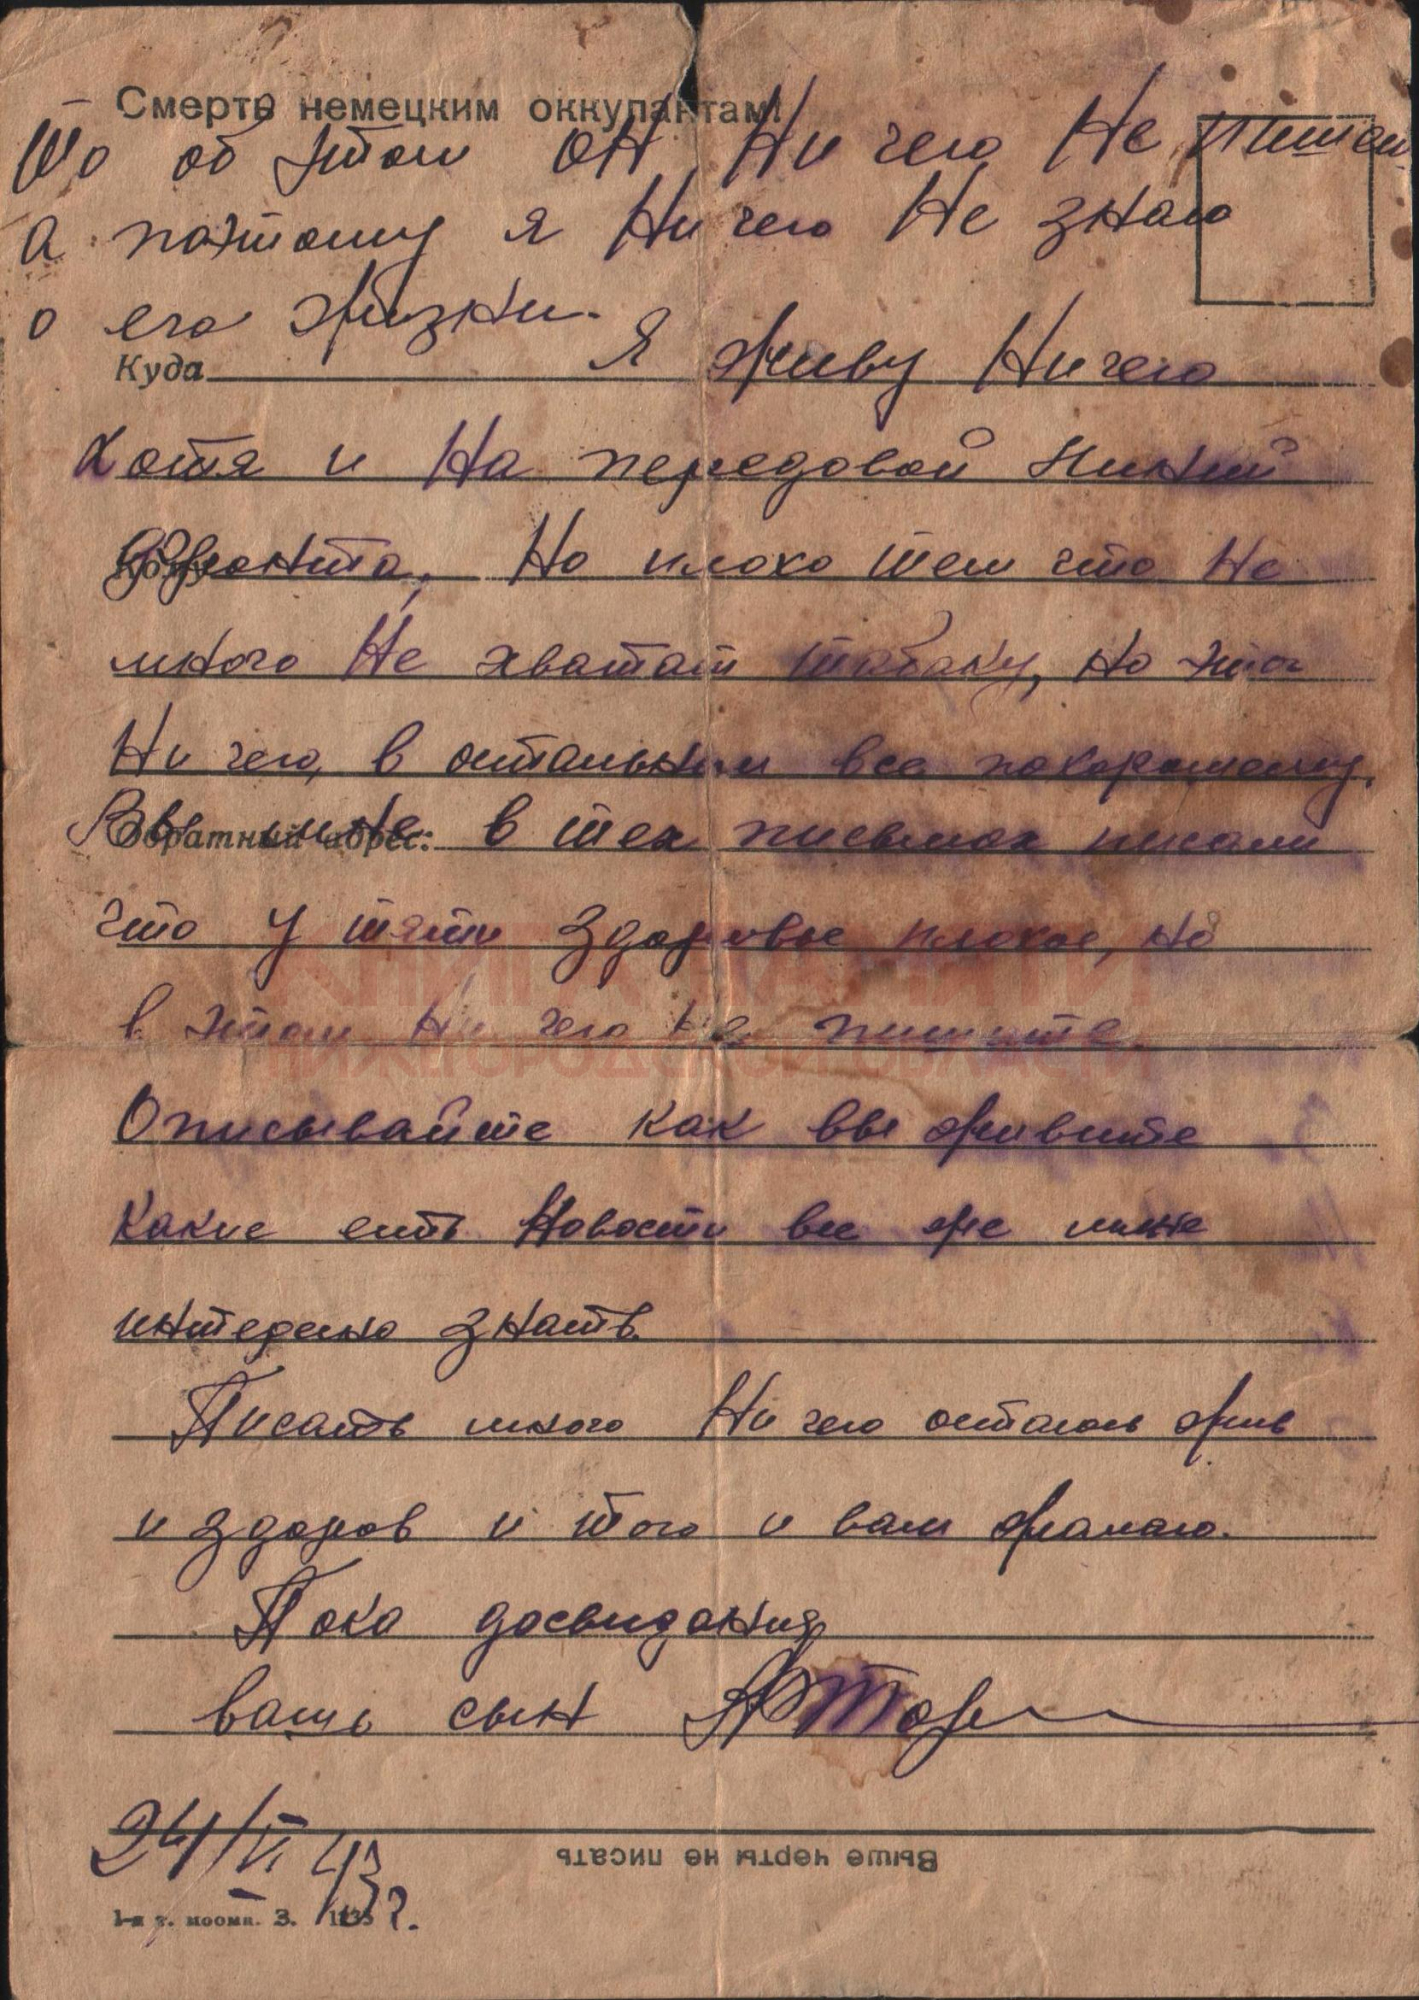 Смерть немецким оккупантам!
То об этом он Ни чего Не пишет
а поэтому я Ни чего Не знаю
о его жизни.
Куда
Я живу Ни чего
Хотя и На передовой
Кому
фронта, Но плохо тем что Не
много Не хватат табаку, но это
Ни чего, в остальном все похорошему.
Обратный адрес:
Вы мне в тех письмах писали
что у тяти здоровье плохое, но
в этом Ни чего Не пишите.
КНИГА ПАМЯТИ
НИЖЕГОРОДСКОЙ ОБЛАСТИ
Описывайте как вы живите
Какие есть Новости все же мне
интересно знать.
Писать много Ни чего остаюсь жив
и здоров и того и вам желаю.
Пока досвидания
вашь сын
24/VI 43 г.
Выше черты не писать